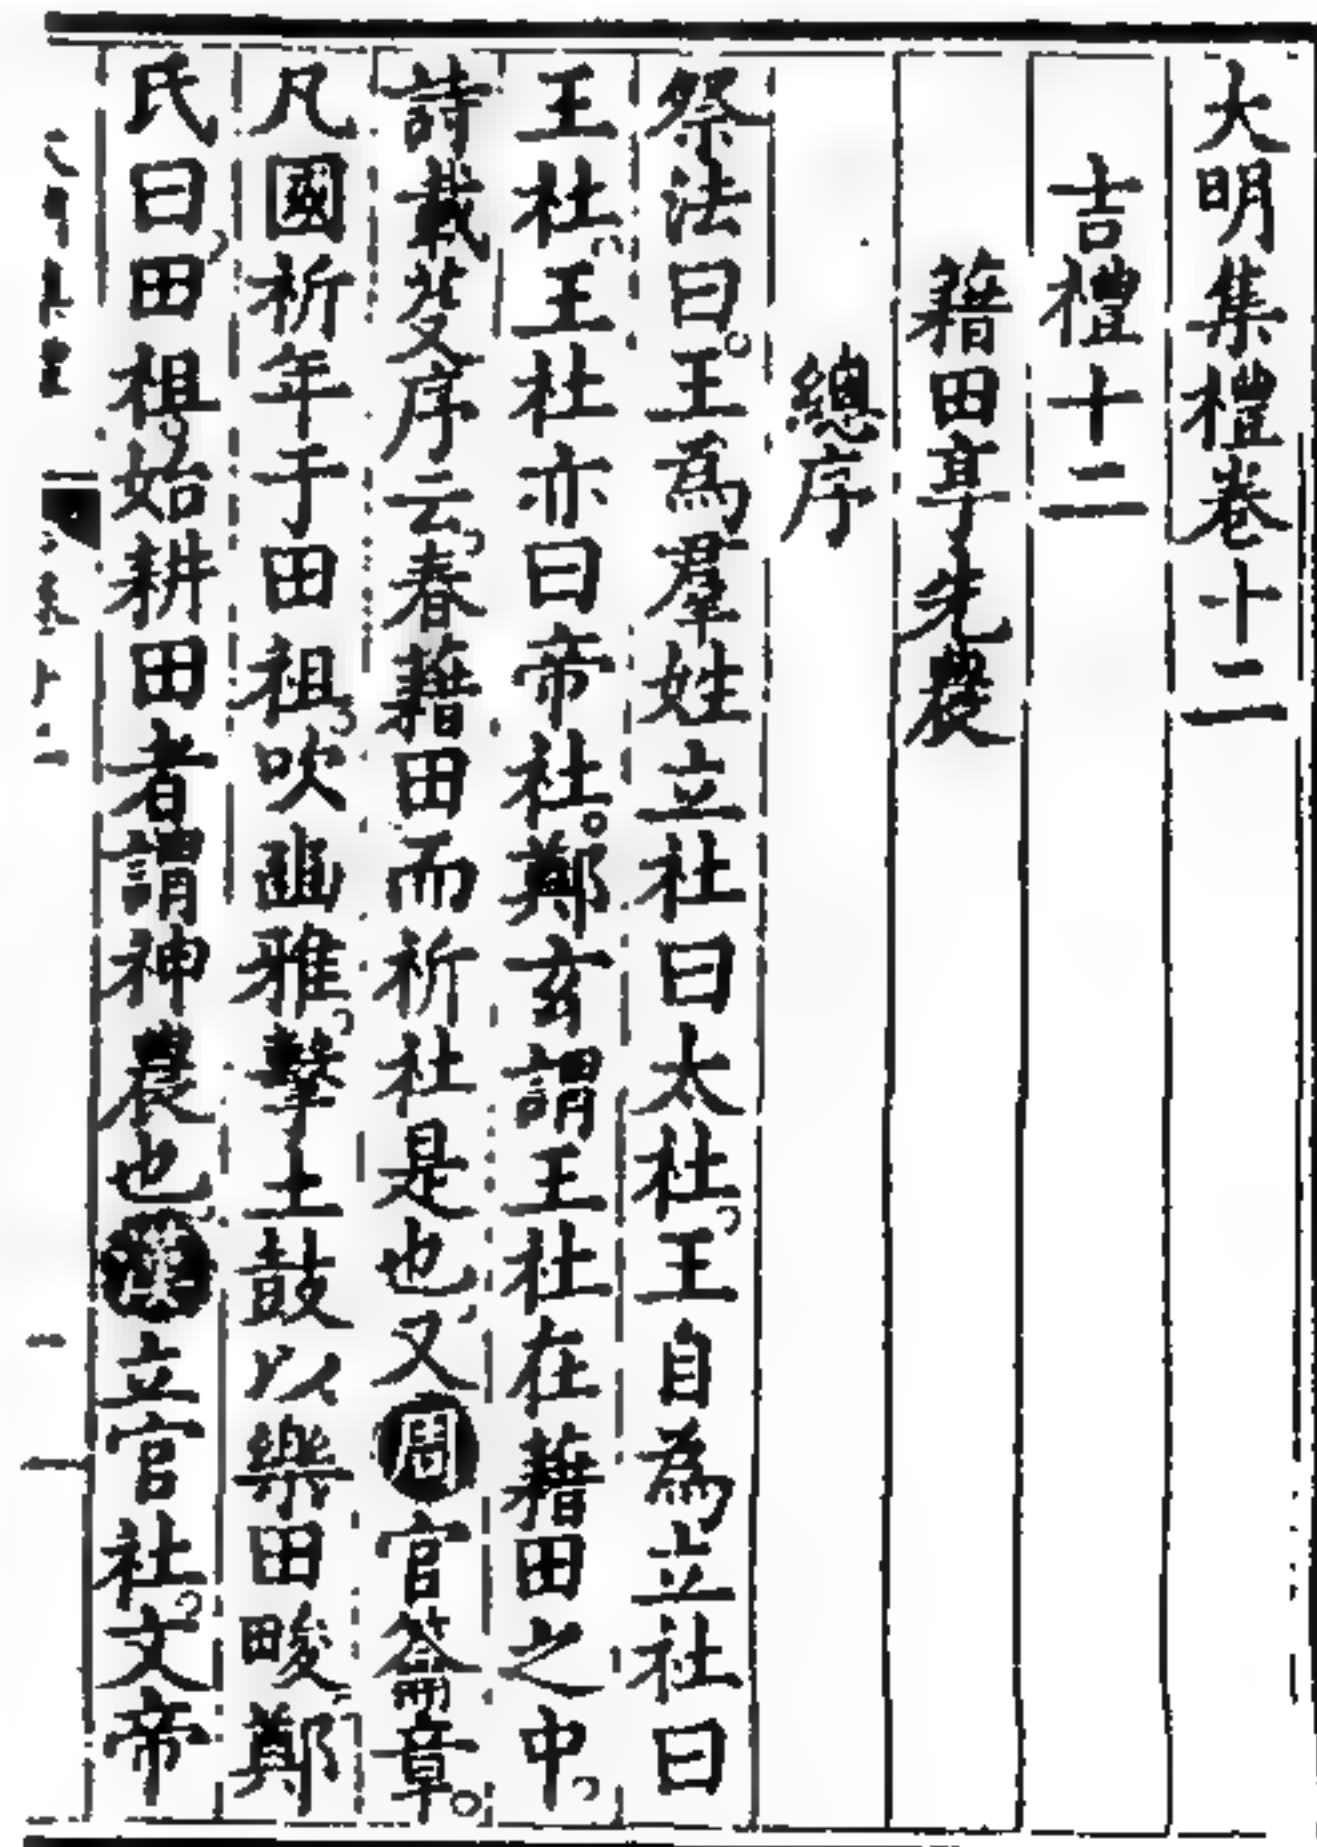 大明集禮卷十二
吉禮十二
籍田享先農
總序
祭法曰。王爲羣姓立社曰太社。王自為立社曰
王社。王社亦曰帝社。鄭玄謂王社在藉田之中。
詩載芟序云。春藉田而祈社是也。又周官籥章。
凡國祈年于田祖。吹豳雅。擊土鼓以樂田畯。鄭
氏曰。田祖。始耕田者謂神農也。漢立官社。文帝